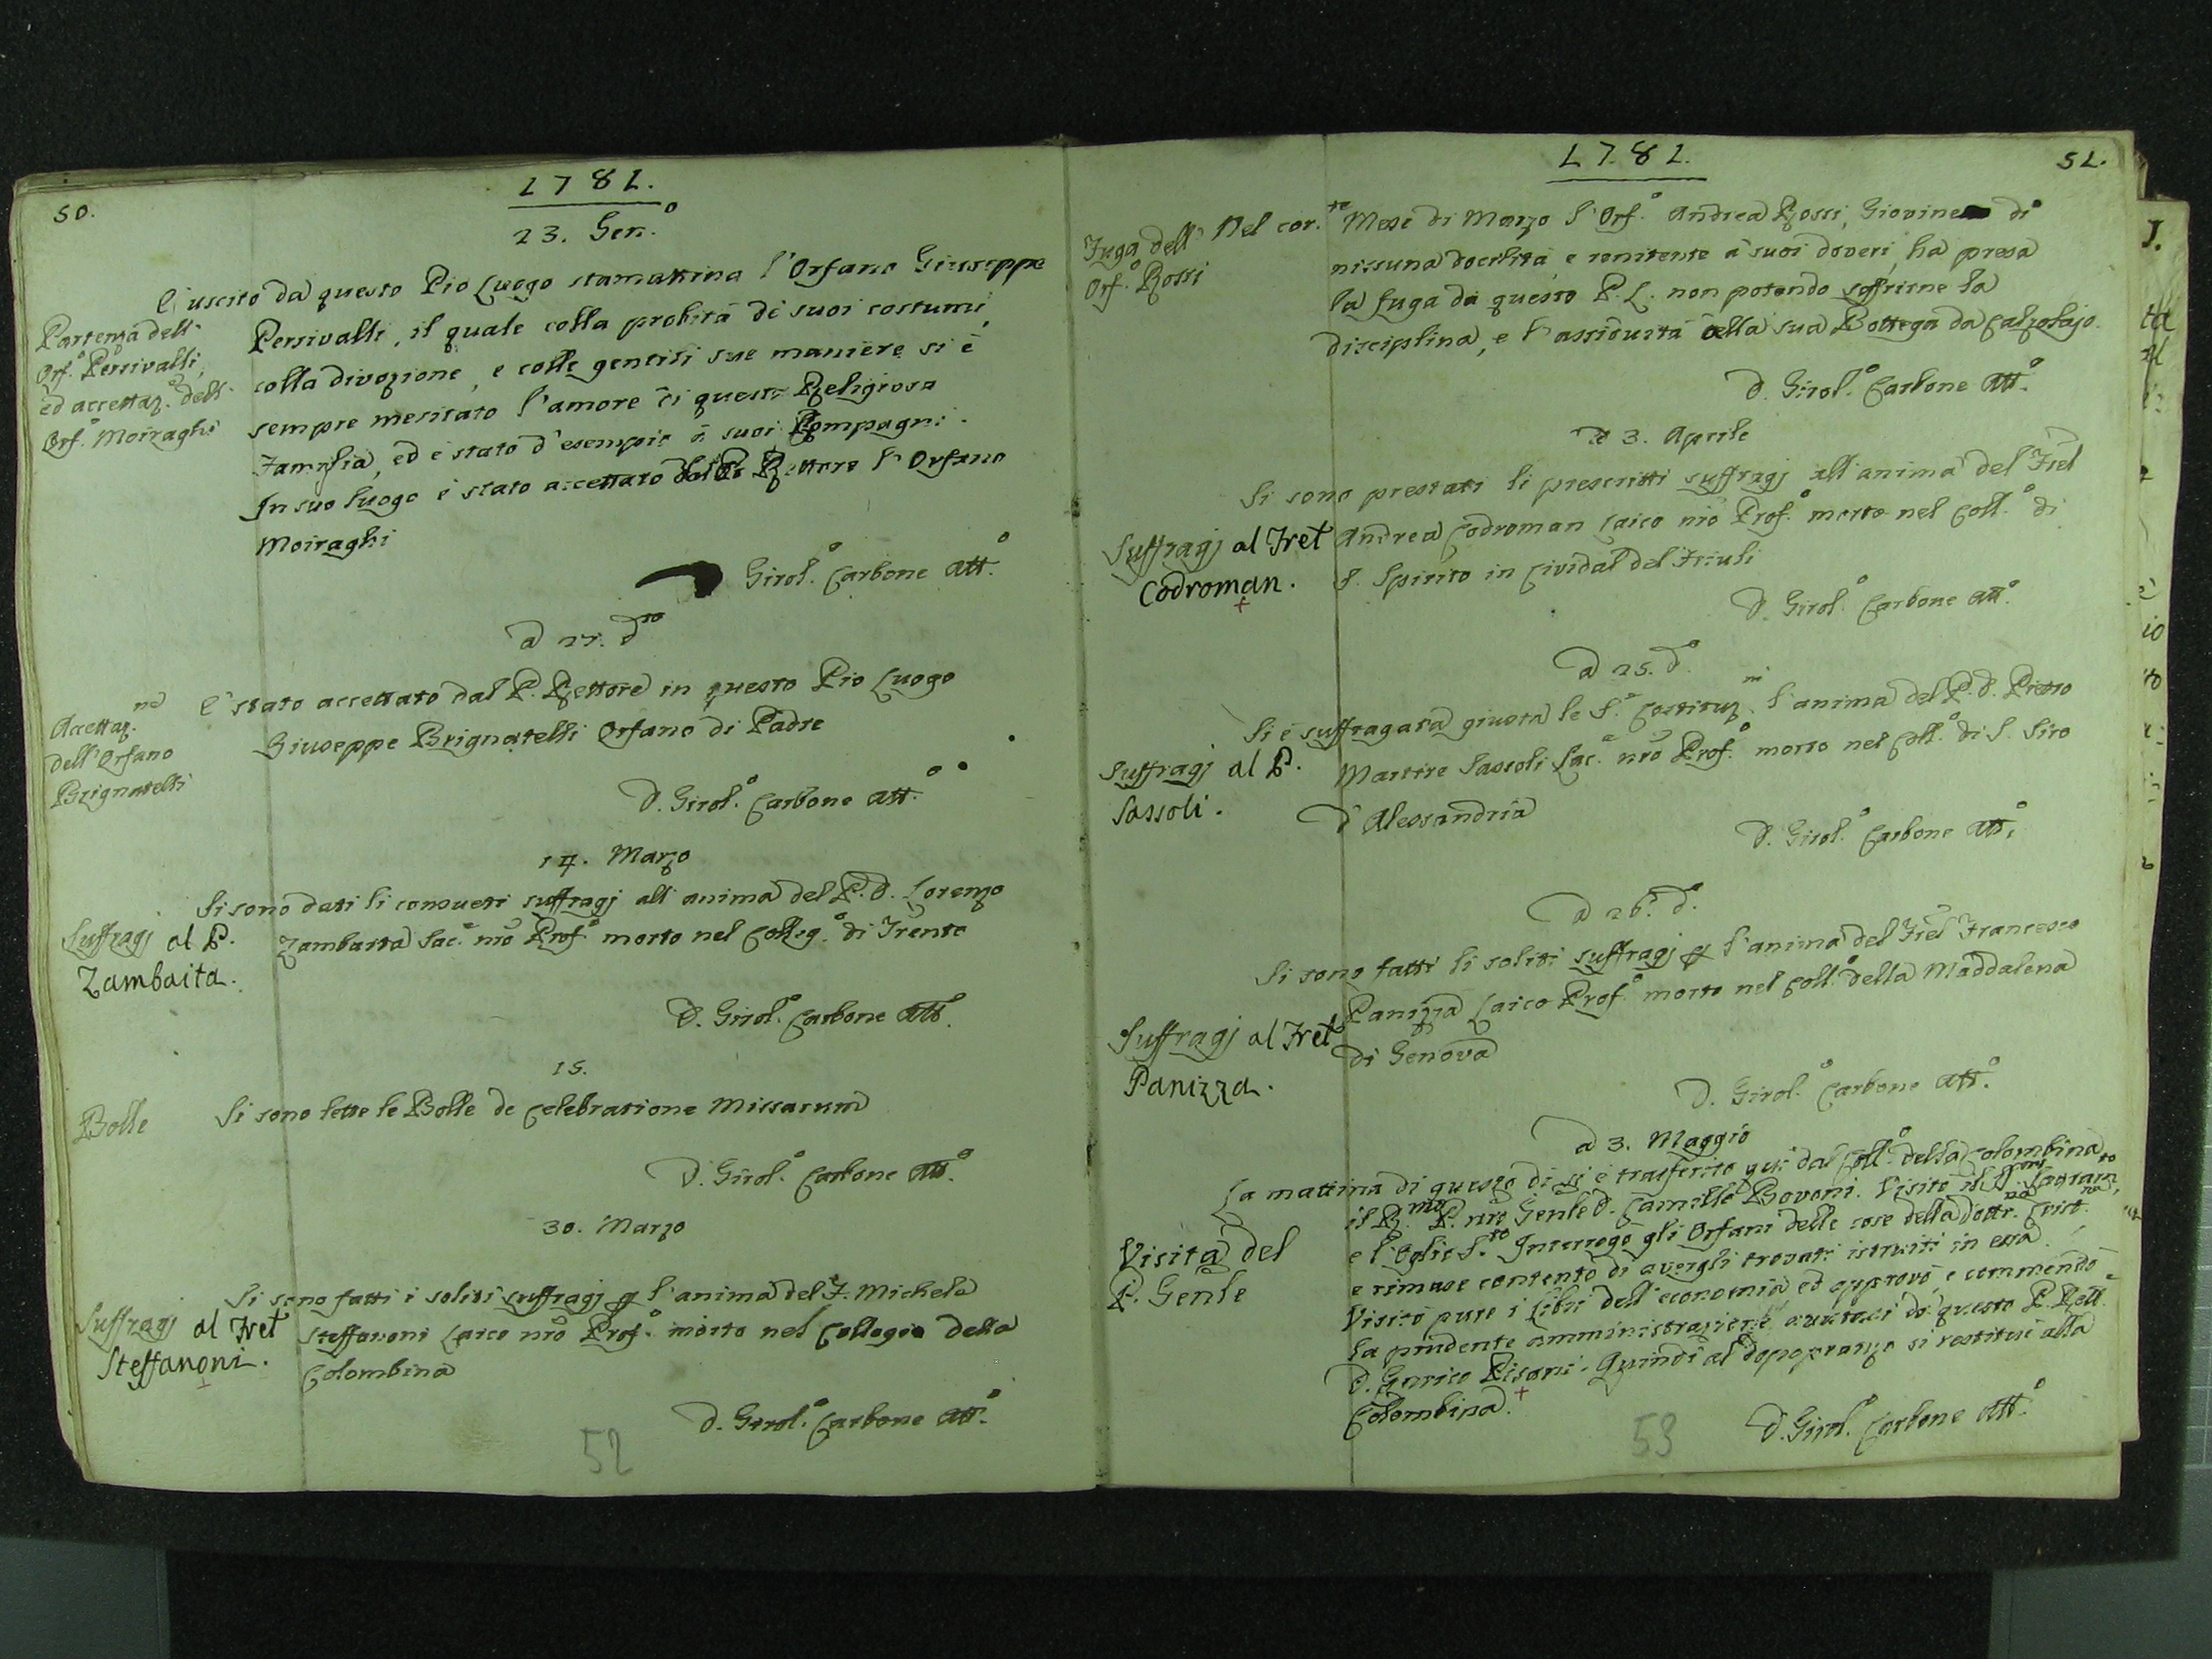 50.
1781.
23. Gen.o
E' uscito da questo Pio Luogo stamattina l'Orfano Giuseppe
Partenza dell'
Orf.o Persivalli,
ed accettaz.e dell'
Orf.o Moiraghi
Persivalli, il quale colla probità de suoi costumi
colla divozione, e colle gentili sue maniere si è
sempre meritato l'amore di questa Religiosa
Famiglia, ed è stato d'esempio a suoi Compagni.
In suo luogo è stato accettato dal P. Rettore l'Orfano
Moiraghi
Girol.o Carbone Att.o
a 27. d.to
Accettaz.ne
dell'Orfano
Brignatelli
E' stato accettato dal P. Rettore in questo Pio Luogo
Giuseppe Brignatelli Orfano di Padre
D. Girol.o Carbone Att.o
14. Marzo
Suffragj al P.
Zambaita.
Si sono dati li consueti suffragj all'anima del P. D. Lorenzo
Zambaita Sac.e nro Prof.o morto nel Colleg.o di Trento
D. Girol.o Carbone Att.o
15.
Bolle
Si sono lette le Bolle de Celebratione Missarum
D. Girol.o Carbone Att.o
30. Marzo
Suffragj al Fret
Steffanoni.
+
Si sono fatti i soliti suffragj p l'anima del F. Michele
Steffanoni Laico nro Prof.o morto nel Collegio della
Colombina
D. Girol.o Carbone Att.o
52
1781.
51.
Fuga dell'
Orf.o Rossi
Nel cor.te Mese di Marzo l'Orf.o Andrea Rossi, Giovine di
nissuna docilità, e renitente a' suoi doveri, ha presa
la fuga da questo P. L. non potendo soffrirne la
disciplina, e l'assiduità della sua Bottega da Calzolajo.
D. Girol.o Carbone Att.o
a 3. Aprile
Suffragj al Fret
Codroman.
+
Si sono prestati li prescritti suffragj all'anima del Frel
Andrea Codroman Laico nro Prof.o morto nel Coll.o di
S. Spirito in Cividal del Friuli
D. Girol.o Carbone Att.o
a 25. d.o
Suffragj al P.
Sassoli.
Si è suffragata giusta le S.e Costituz.ni l'anima del P. D. Pietro
Martire Sassoli Sac.e nro Prof.o morto nel Coll.o di S. Siro
d'Alessandria
D. Girol.o Carbone Att.o
a 26. d.o
Suffragj al Fret
Panizza.
Si sono fatti li soliti suffragj p l'anima del Frel Francesco
Panizza Laico Prof.o morto nel Coll.o della Maddalena
di Genova
D. Girol.o Carbone Att.o
a 3. Maggio
Visita del
P. Genle
La mattina di questo dì si è trasferito qui dal Coll.o della Colombina
il R.mo P. nro Genle D. Camillo Bovoni. Visitò il SS. Sagram.to
e l'Oglio S.to Interrogò gli Orfani delle cose della Dottr.na Crist.na
e rimase contento di avergli trovati istruiti in essa.
Visitò pure i Libri dell'economia ed approvò e commendò
la prudente amministrazione di questo P. Rett.e
D. Enrico Pisani. Quindi al dopopranzo si restituì alla
Colombina. +
D. Girol.o Carbone Att.o
53